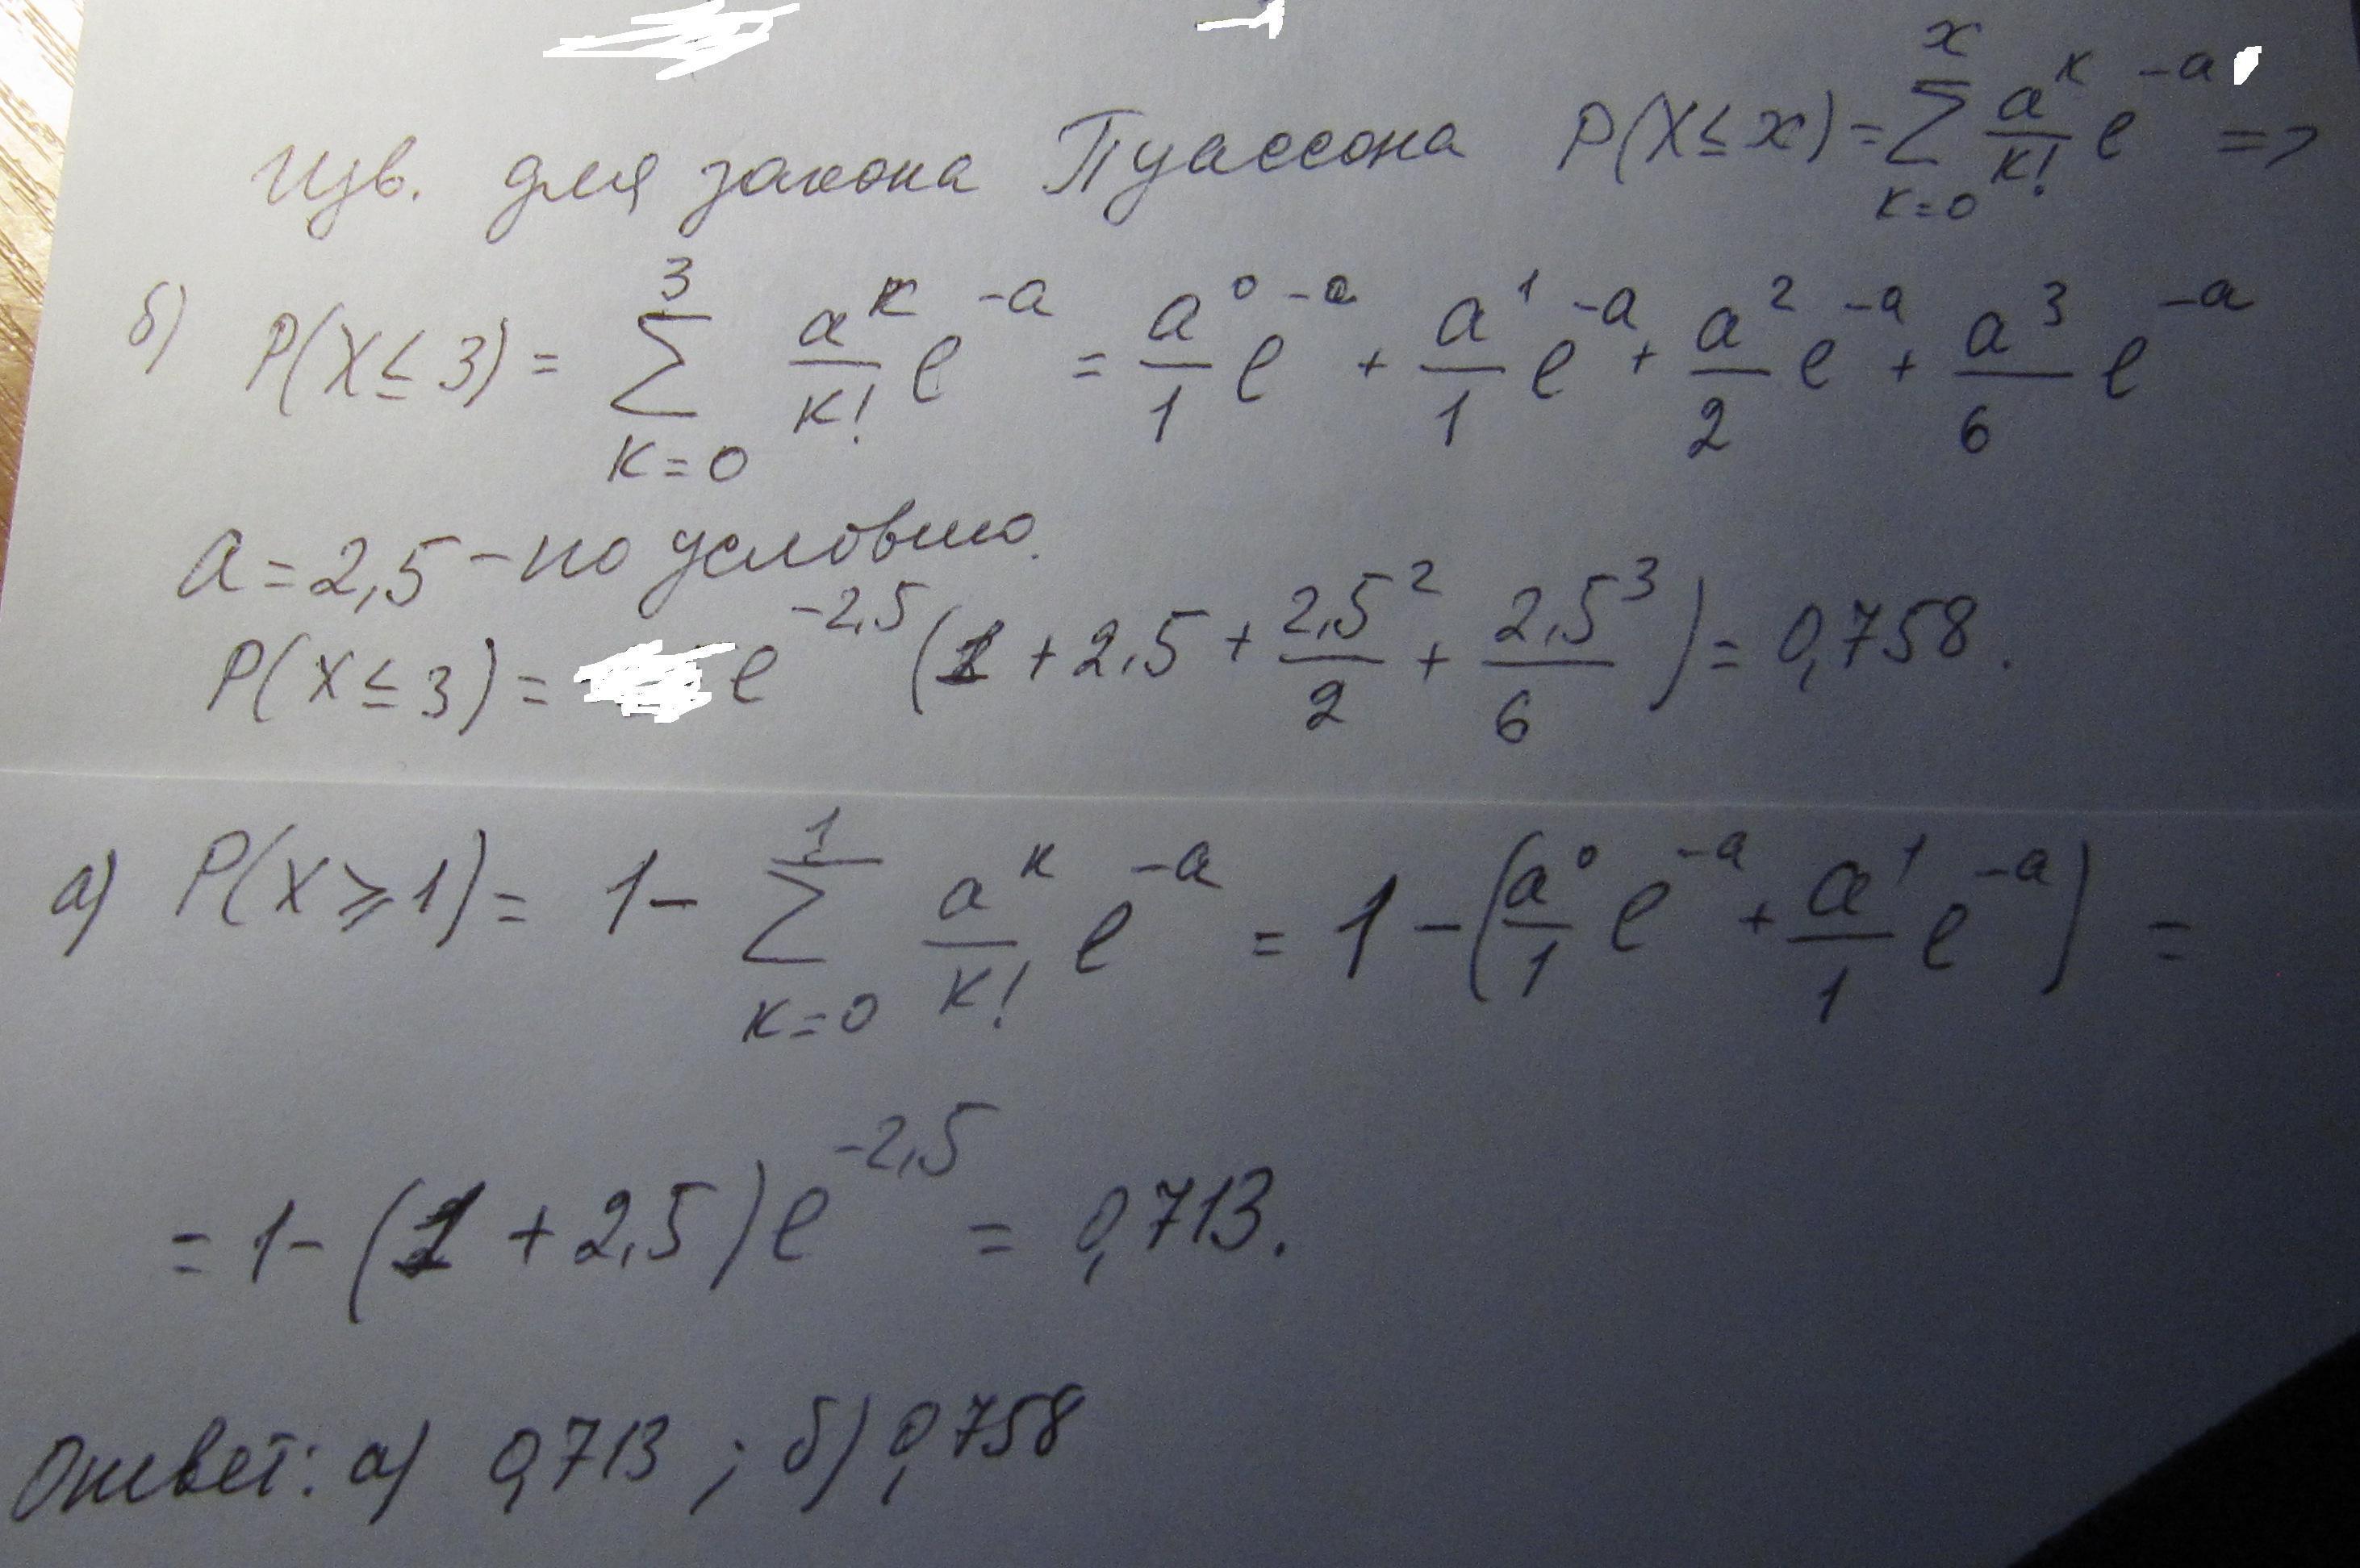 Изв. для закона Пуассона P(X≤x) = ∑_{k=0}^{x} a^k/k! e^{-a} =>
б) P(X≤3) = ∑_{k=0}^{3} a^k/k! e^{-a} = a^0/1 e^{-a} + a^1/1 e^{-a} + a^2/2 e^{-a} + a^3/6 e^{-a}
a = 2,5 – по условию.
P(X≤3) = e^{-2,5} (1 + 2,5 + 2,5^2/2 + 2,5^3/6) = 0,758.
а) P(X⩾1) = 1 - ∑_{k=0}^{1} a^k/k! e^{-a} = 1 - (a^0/1 e^{-a} + a^1/1 e^{-a}) =
= 1 - (1 + 2,5) e^{-2,5} = 0,713.
Ответ: а) 0,713 ; б) 0,758